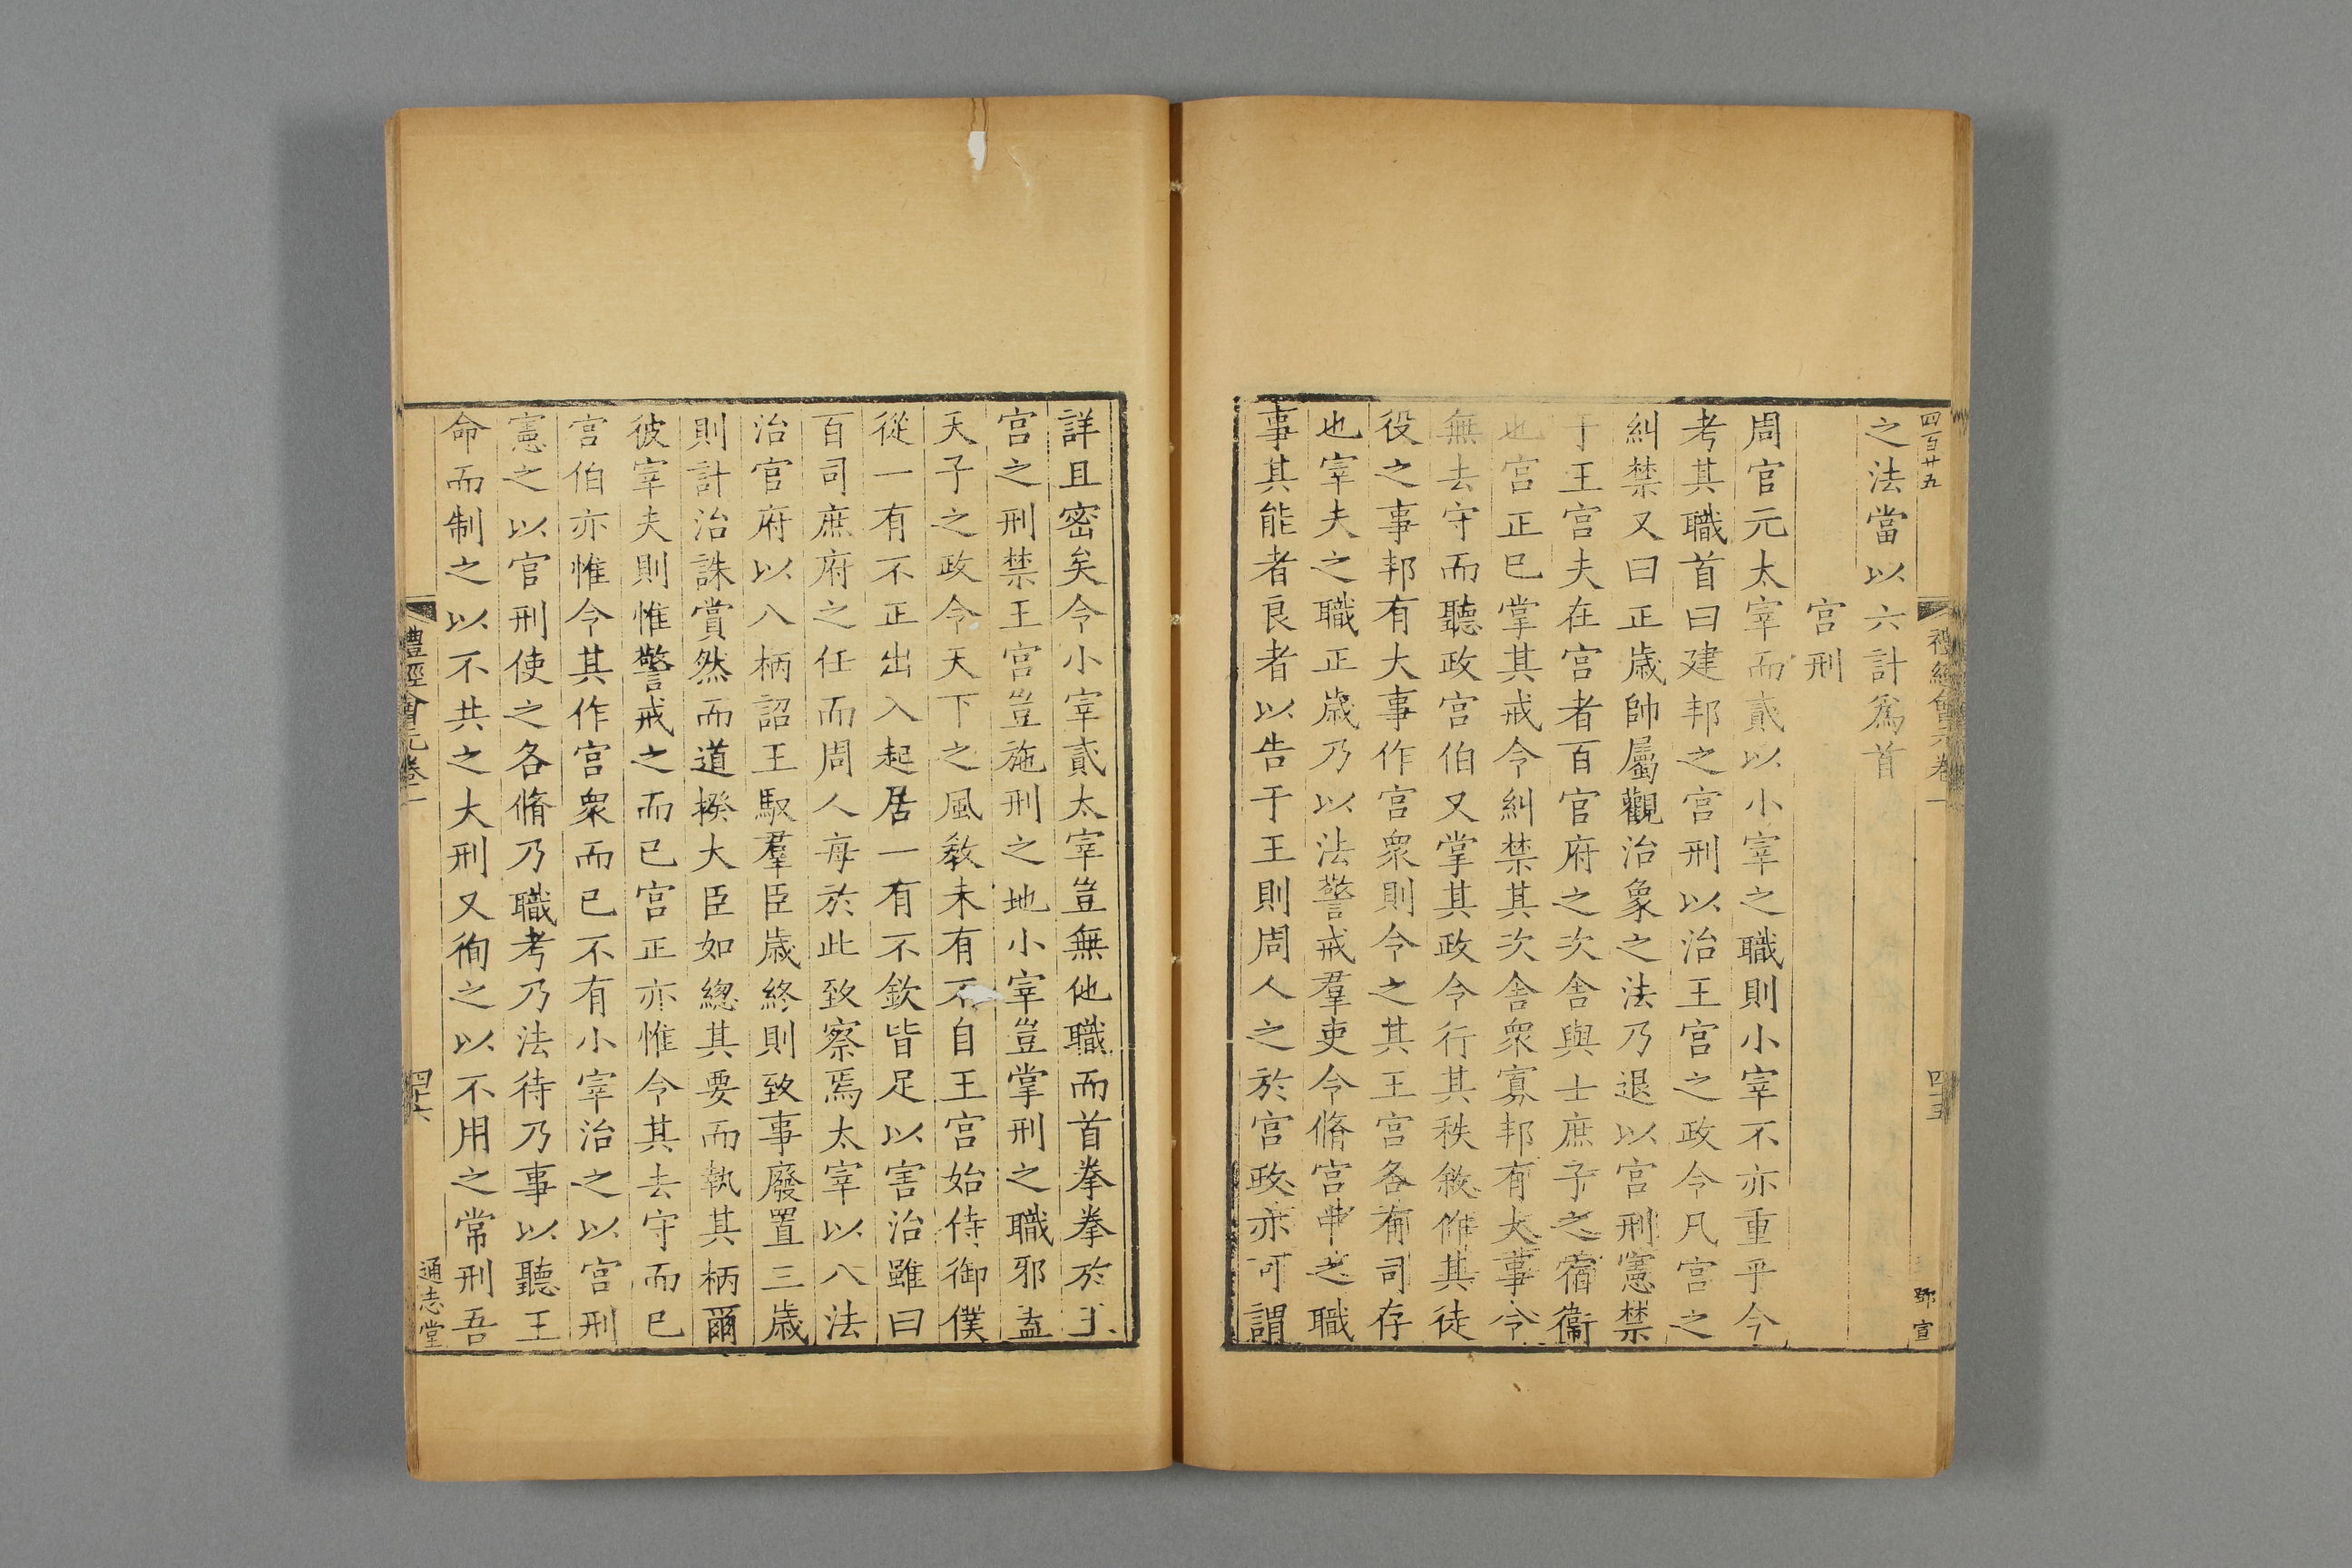 四百廿五
禮經會元卷一
四十五
鄧宣
之法當以六計爲首
宮刑
周官元太宰而貳以小宰之職則小宰不亦重乎今
考其職首曰建邦之宮刑以治王宮之政令凡宮之
糾禁又曰正歲帥屬觀治象之法乃退以宮刑憲禁
于王宮夫在宮者百官府之次舍與士庶子之宿衞
也宮正已掌其戒令糾禁其次舍衆寡邦有大事令
無去守而聽政宮伯又掌其政令行其秩敘作其徒
役之事邦有大事作宮衆則令之其王宮各有司存
也宰夫之職正歲乃以法警戒羣吏令脩宮中之職
事其能者良者以告于王則周人之於宮政亦可謂
詳且密矣今小宰貳太宰豈無他職而首拳拳於王
宮之刑禁王宮豈施刑之地小宰豈掌刑之職邪盍
天子之政令天下之風教未有不自王宮始侍御僕
從一有不正出入起居一有不欽皆足以害治雖曰
百司庶府之任而周人每於此致察焉太宰以八法
治官府以八柄詔王馭羣臣歲終則致事廢置三歲
則計治誅賞然而道揆大臣如總其要而執其柄爾
彼宰夫則惟警戒之而已宮正亦惟令其去守而已
宮伯亦惟令其作宮衆而已不有小宰治之以宮刑
憲之以官刑使之各脩乃職考乃法待乃事以聽王
命而制之以不共之大刑又徇之以不用之常刑吾
禮經會元卷一
四十六
通志堂